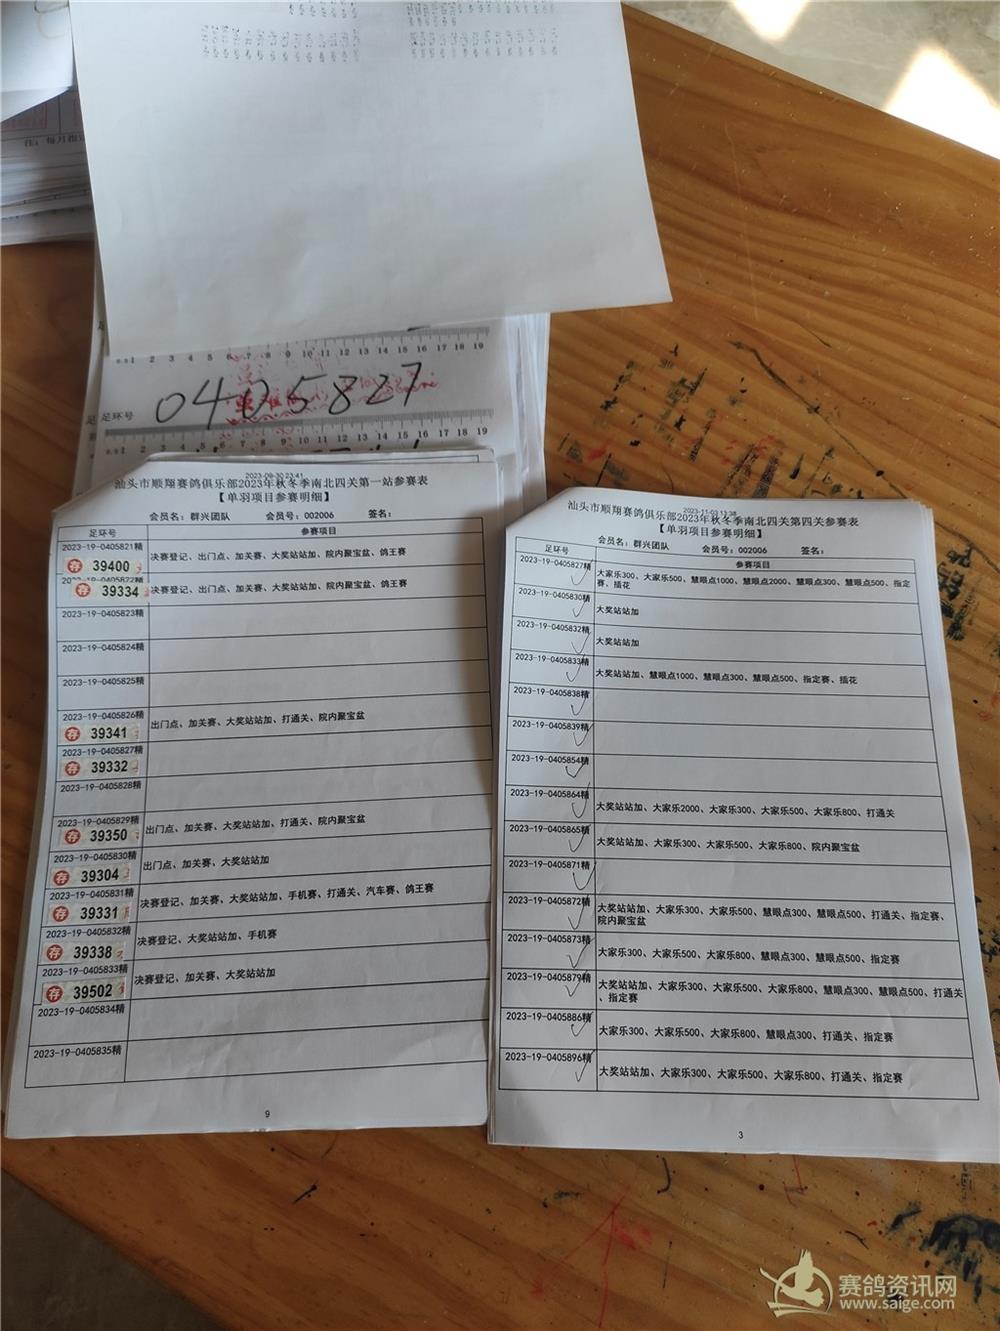 注：每月指
0.51 2 3 4 5 6 7 8 9 10 11 12 13 14 15 16 17 18 19
足环号
0405827
1 2 3 4 5 6 7 8 9 10 11 12 13 14 15 16 17 18 19
2023-09-30 23:41
汕头市顺翔赛鸽俱乐部2023年秋冬季南北四关第一站参赛表
【单羽项目参赛明细】
会员名：群兴团队 会员号：002006 签名：
足环号 参赛项目
2023-19-0405821精
存 39400
决赛登记、出门点、加关赛、大奖站站加、院内聚宝盆、鸽王赛
2023-19-0405822精
存 39334
决赛登记、出门点、加关赛、大奖站站加、院内聚宝盆、鸽王赛
2023-19-0405823精
2023-19-0405824精
2023-19-0405825精
2023-19-0405826精
存 39341
出门点、加关赛、大奖站站加、打通关、院内聚宝盆
2023-19-0405827精
存 39332
2023-19-0405828精
2023-19-0405829精
存 39350
出门点、加关赛、大奖站站加、打通关、院内聚宝盆
2023-19-0405830精
存 39304
出门点、加关赛、大奖站站加
2023-19-0405831精
存 39331
决赛登记、加关赛、大奖站站加、手机赛、打通关、汽车赛、鸽王赛
2023-19-0405832精
存 39338
决赛登记、大奖站站加、手机赛
2023-19-0405833精
存 39502
决赛登记、加关赛、大奖站站加
2023-19-0405834精
2023-19-0405835精
9
2023-11-03 13:38
汕头市顺翔赛鸽俱乐部2023年秋冬季南北四关第四关参赛表
【单羽项目参赛明细】
会员名：群兴团队 会员号：002006 签名：
足环号 参赛项目
2023-19-0405827精
大家乐300、大家乐500、慧眼点1000、慧眼点2000、慧眼点300、慧眼点500、指定
赛、插花
2023-19-0405830精
大奖站站加
2023-19-0405832精
大奖站站加
2023-19-0405833精
大奖站站加、慧眼点1000、慧眼点300、慧眼点500、指定赛、插花
2023-19-0405838精
2023-19-0405839精
2023-19-0405854精
2023-19-0405864精
大奖站站加、大家乐2000、大家乐300、大家乐500、大家乐800、打通关
2023-19-0405865精
大奖站站加、大家乐300、大家乐500、大家乐800、院内聚宝盆
2023-19-0405871精
2023-19-0405872精
大奖站站加、大家乐300、大家乐500、慧眼点300、慧眼点500、打通关、指定赛、
院内聚宝盆
2023-19-0405873精
大家乐300、大家乐500、大家乐800、慧眼点300、慧眼点500、指定赛
2023-19-0405879精
大奖站站加、大家乐300、大家乐500、大家乐800、慧眼点300、慧眼点500、打通关
、指定赛
2023-19-0405886精
大家乐300、大家乐500、大家乐800、慧眼点300、打通关、指定赛
2023-19-0405896精
大奖站站加、大家乐300、大家乐500、大家乐800、打通关、指定赛
3
赛鸽资讯网
www.saige.com